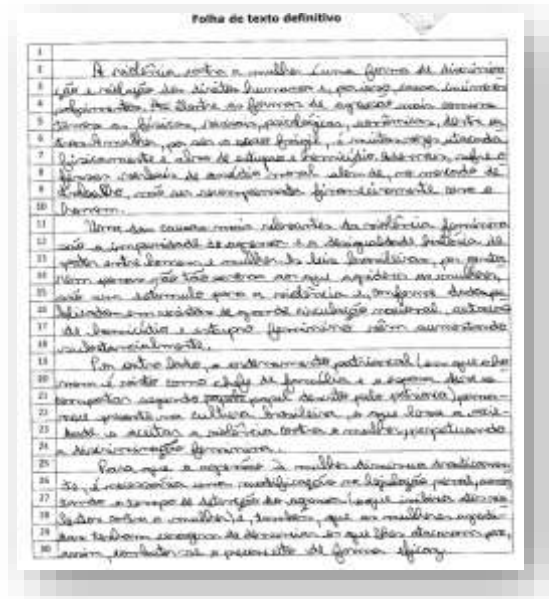 Folha de texto definitivo
1
2 A violência contra a mulher é uma forma de discrimina-
3 ção e violação dos direitos humanos e, por isso, causa inúmeros
4 sofrimentos. As dentre as formas de agressão mais comuns
5 temos as físicas, sexuais, psicológicas, econômicas, dentre ou-
6 tras. A mulher, por ser o sexo frágil, é muitas vezes atacada
7 fisicamente e alvo de estupro e homicídio. Ademais, sofre
8 verbais de assédio moral além de, no mercado de
9 trabalho, não ser recompensada financeiramente como o
10 homem.
11 Uma das causas mais relevantes da violência feminina
12 são a impunidade do agressor e a desigualdade histórica de
13 poder entre homens e mulheres. As leis brasileiras, por
14 penas não tão severas aos que agridem as mulheres,
15 são um estímulo para a violência e, conforme dados pu-
16 blicados em revistas de grande circulação nacional,
17 de homicídio e estupro feminino vêm aumentando
18 substancialmente.
19 Por outro lado, o ordenamento patriarcal (em que o ho-
20 mem é visto como chefe de família e a esposa deve se
21 comportar segundo papel descrito pelo patriarca) perma-
22 nece presente na cultura brasileira, o que leva a socie-
23 dade a aceitar a violência contra a mulher, perpetuando
24 a discriminação feminina.
25 Para que a agressão à mulher diminua drasticamen-
26 te, é necessária uma modificação na legislação penal, aumen-
27 tando o tempo de detenção do agressor (o que inibirá
28 contra a mulher) e, também, que as mulheres agredi-
29 das tenham coragem de denunciar os que lhes atacaram para,
30 assim, combater-se o preconceito de forma eficaz.